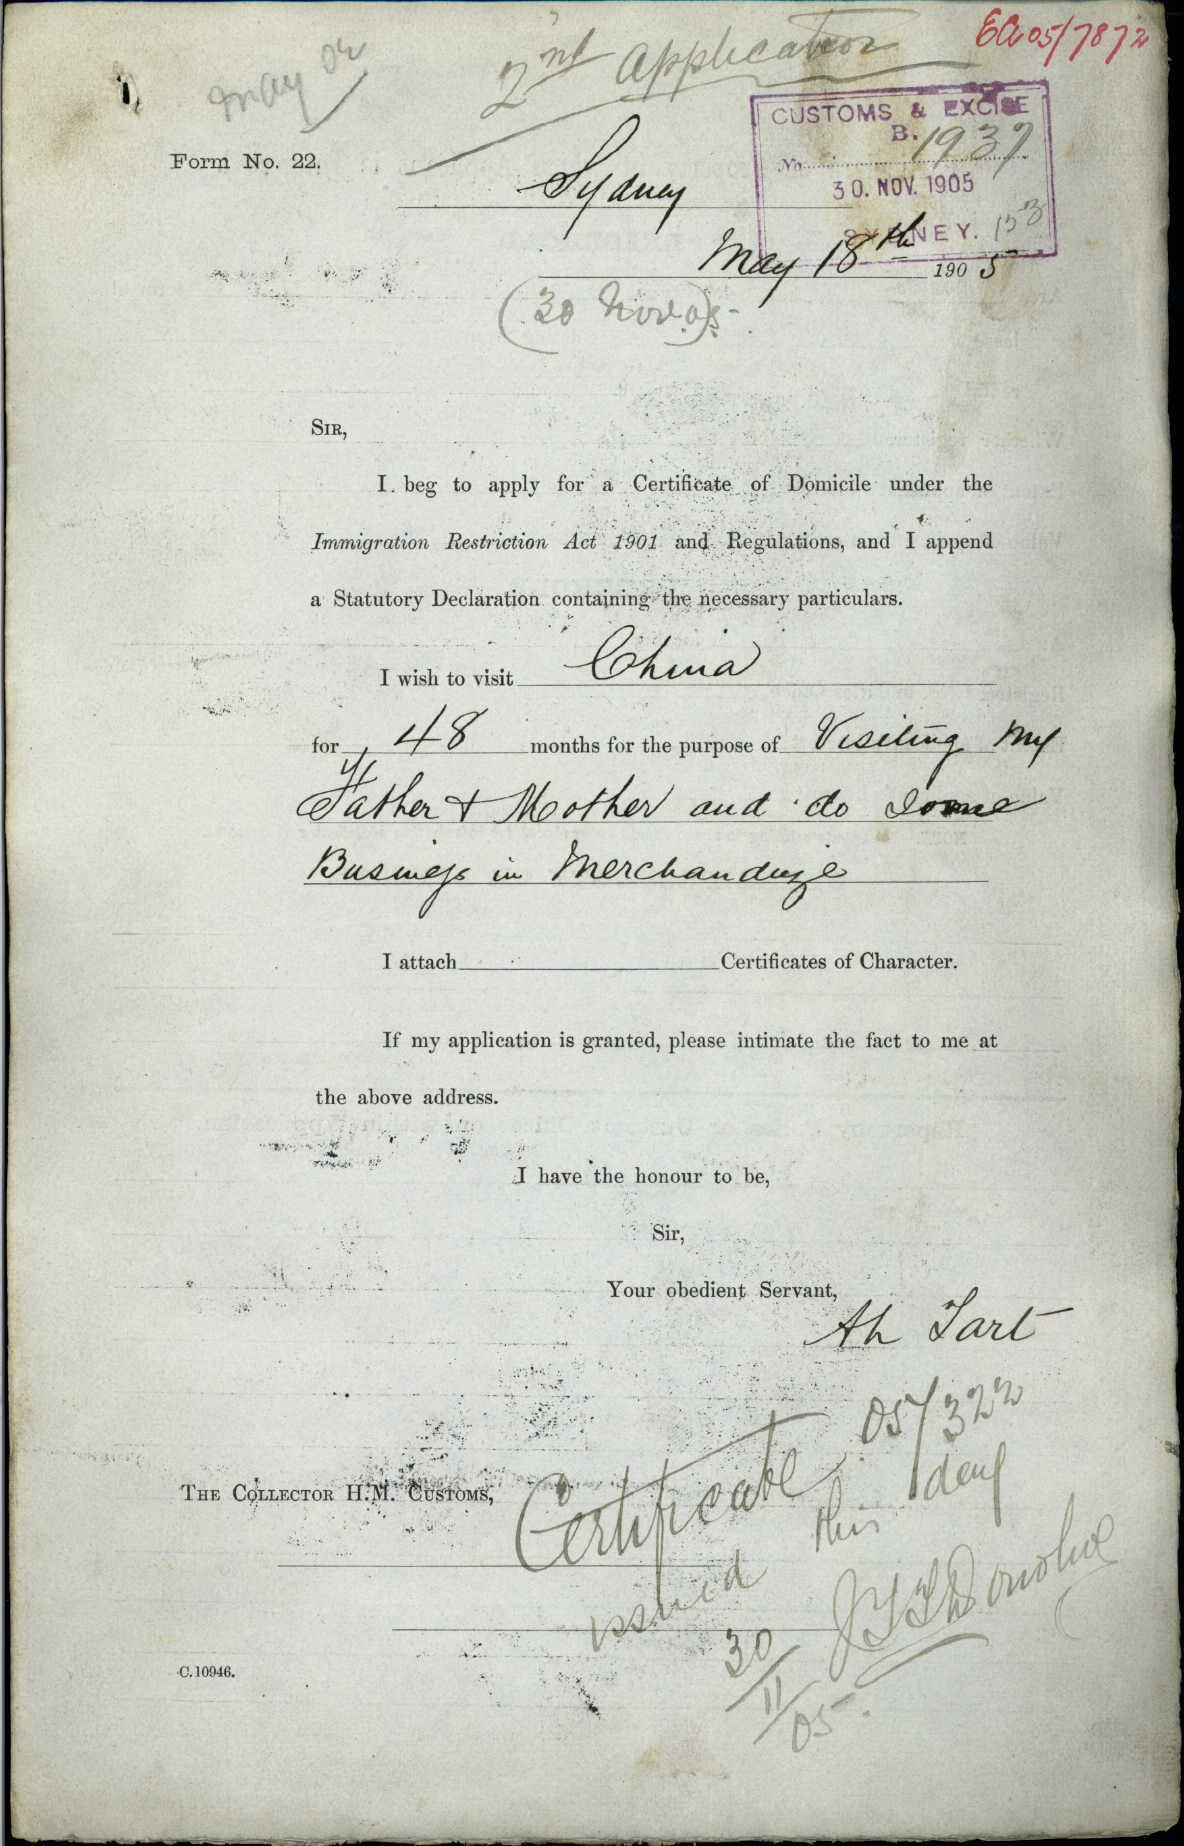 2nd Application
EA 05/7872
May 02
CUSTOMS & EXCISE
B.
No. 1937
30. NOV. 1905
SYDNEY. 153
Form No. 22.
Sydney
May 18th 1905
(30 Nov. 05-
SIR,
I beg to apply for a Certificate of Domicile under the
Immigration Restriction Act 1901 and Regulations, and I append
a Statutory Declaration containing the necessary particulars.
I wish to visit China
for 48 months for the purpose of Visiting my
Father & Mother and do some
Business in Merchandize
I attach Certificates of Character.
If my application is granted, please intimate the fact to me at
the above address.
I have the honour to be,
Sir,
Your obedient Servant,
Ah Tart
THE COLLECTOR H.M. CUSTOMS,
Certificate 05/322
issued this day
J T T Donohoe
30
11
05.
C.10946.